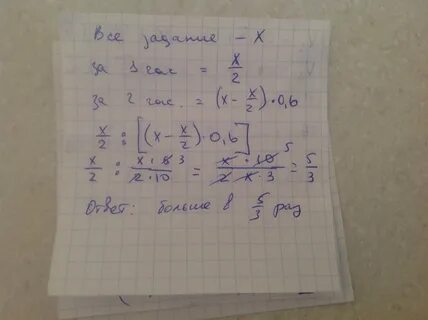 Все задание - X
за 1 час = x/2
за 2 час. = (x - x/2) · 0,6
x/2 : [(x - x/2) · 0,6]
x/2 : x · 6 3 / 2 · 10 = x · 10 5 / 2 x · 3 = 5/3
Ответ: больше в 5/3 раз